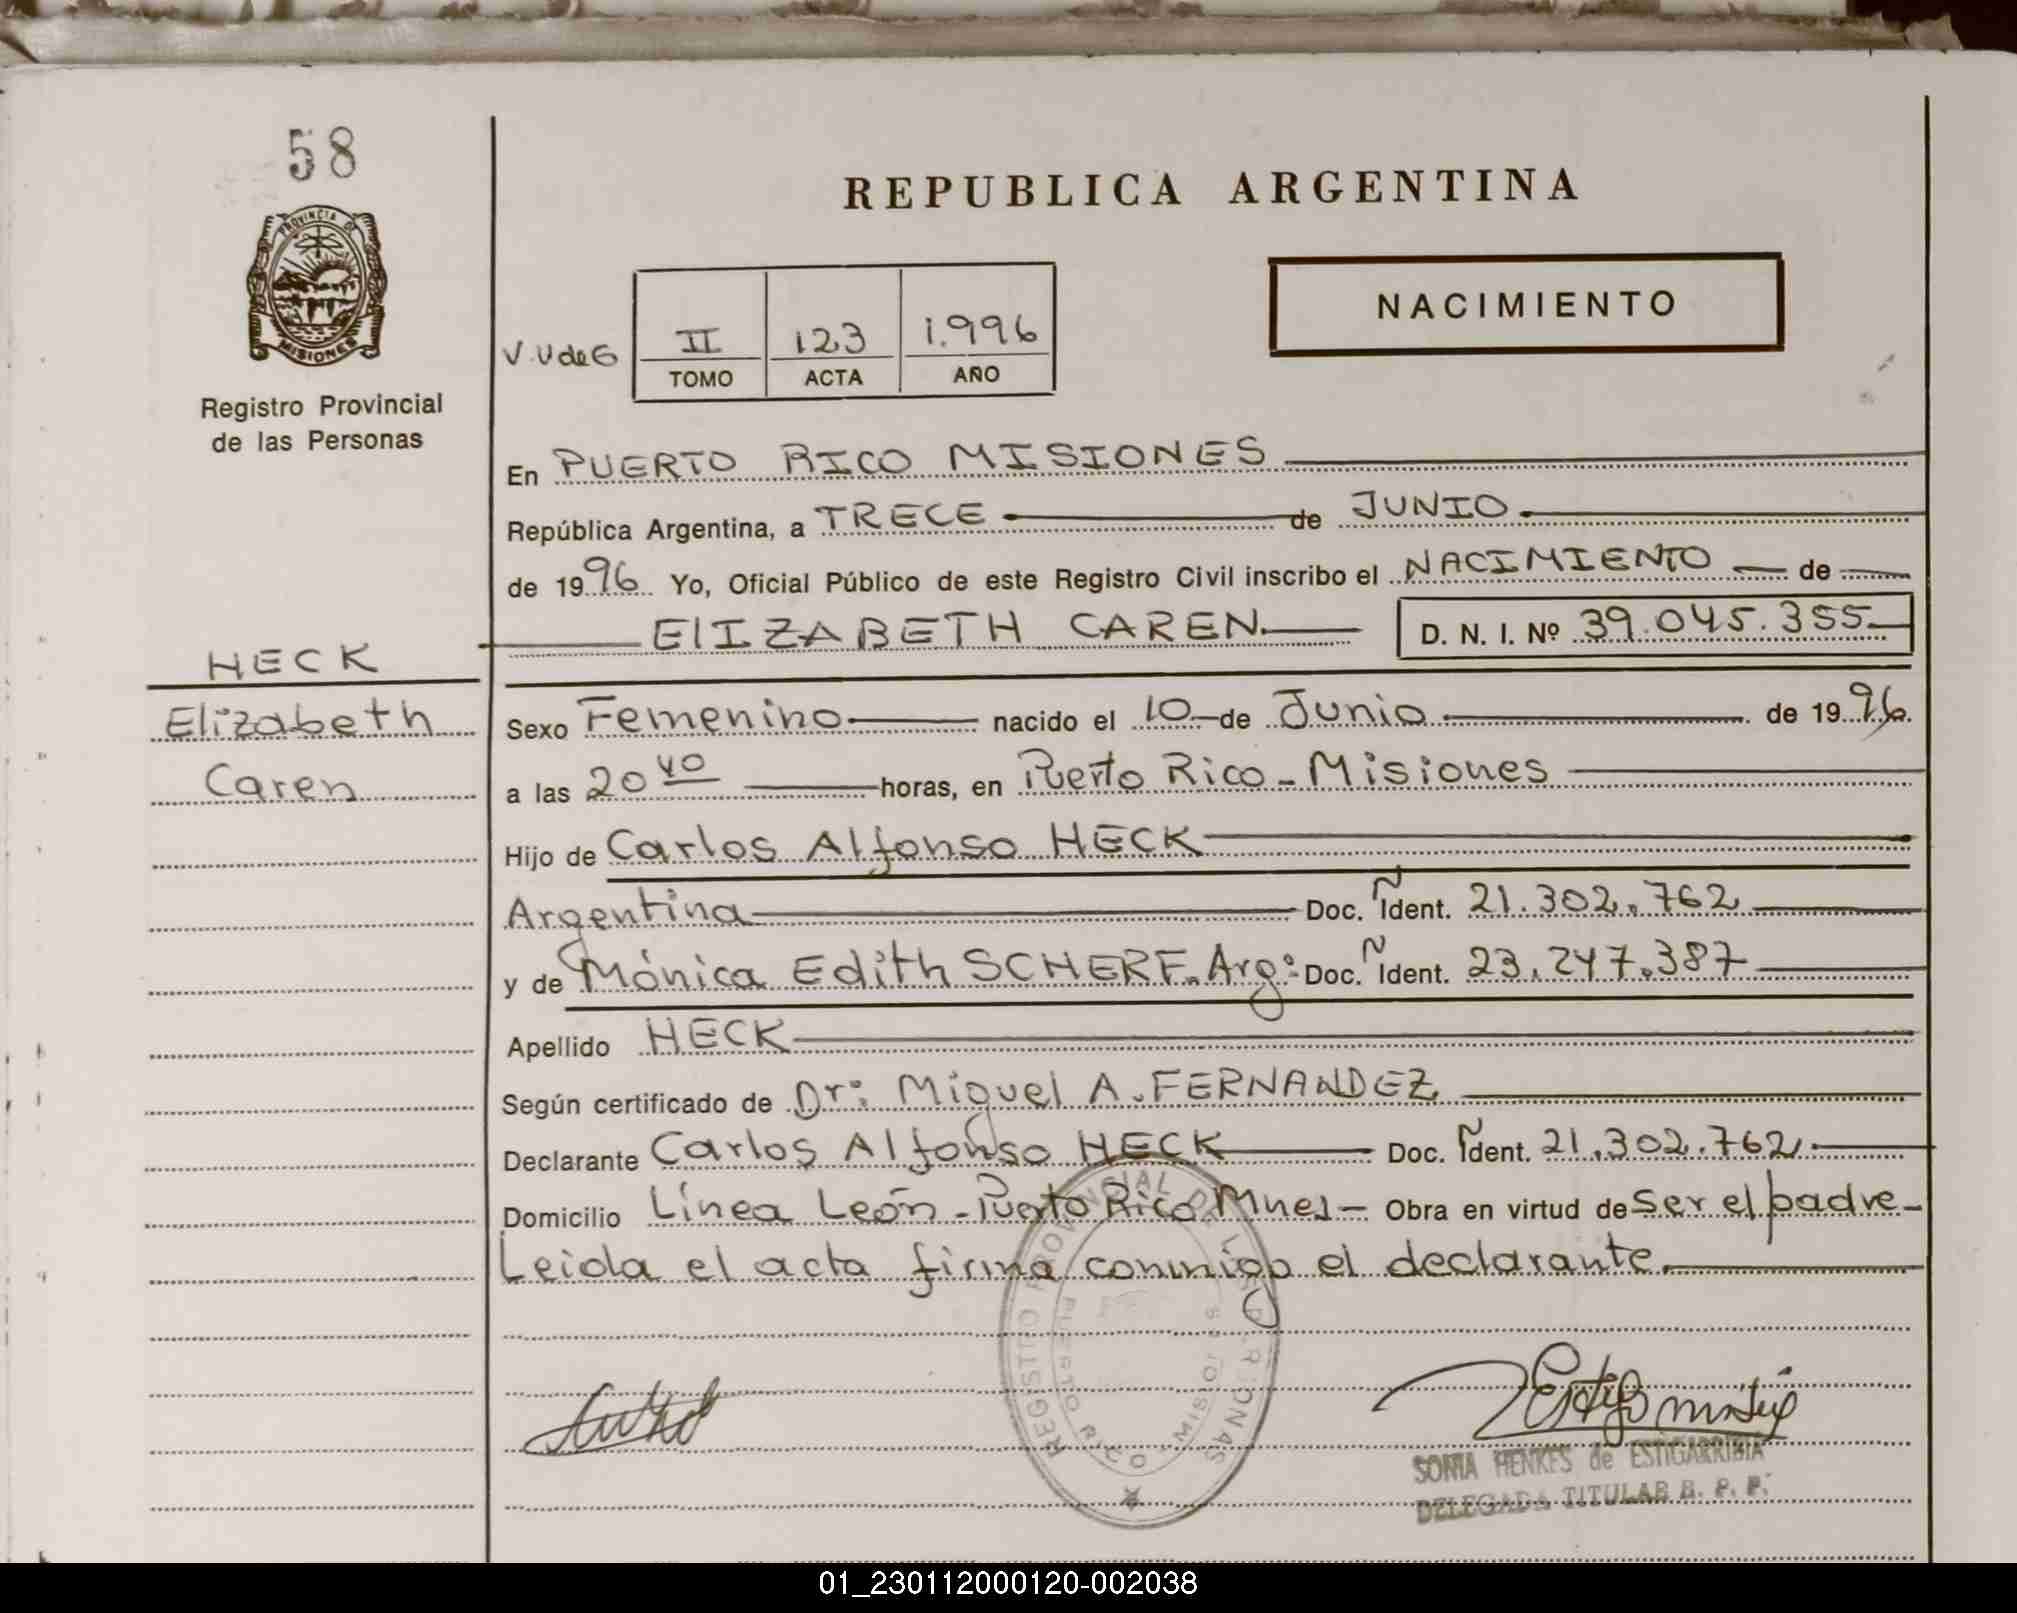 58
PROVINCIA DE
MISIONES
Registro Provincial
de las Personas
REPUBLICA ARGENTINA
NACIMIENTO
V.V de G
II 123 1.996
TOMO ACTA AÑO
En PUERTO RICO MISIONES
República Argentina, a TRECE de JUNIO
de 1996 Yo, Oficial Público de este Registro Civil inscribo el NACIMIENTO de
ElIZABETH CAREN. D. N. I. Nº 39.045.355
HECK
Elizabeth
Caren
Sexo Femenino nacido el 10 de Junio de 1996.
a las 20 40 horas, en Puerto Rico - Misiones
Hijo de Carlos Alfonso HECK
Argentina Doc. Ident. 21.302.762
y de Mónica Edith SCHERF. Arg: Doc. Ident. 23.247.387
Apellido HECK
Según certificado de Dr: Miguel A. FERNANDEZ
Declarante Carlos Alfonso HECK Doc. Ident. 21.302.762
Domicilio Línea León - Puerto Rico Mnes - Obra en virtud de ser el padre -
Leida el acta firma conmigo el declarante.
REGISTRO PROVINCIAL DE LAS PERSONAS
PUERTO RICO MISIONES
SONIA HENKES de ESTIGARRIBIA
DELEGADA TITULAR R. P. P.
01_230112000120-002038